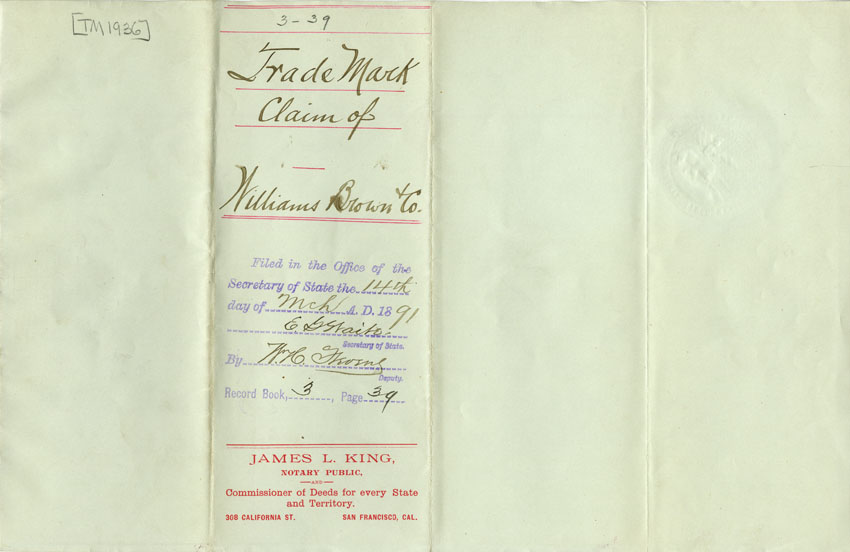 [TM1936]
3-39
Trade Mark
Claim of
Williams Brown & Co.
Filed in the Office of the
Secretary of State the 14th
day of Mch A. D. 1891
E G Waite
Secretary of State.
By W. H. Thorne
Deputy.
Record Book, 3, Page 39
JAMES L. KING,
NOTARY PUBLIC,
—AND—
Commissioner of Deeds for every State
and Territory.
308 CALIFORNIA ST. SAN FRANCISCO, CAL.